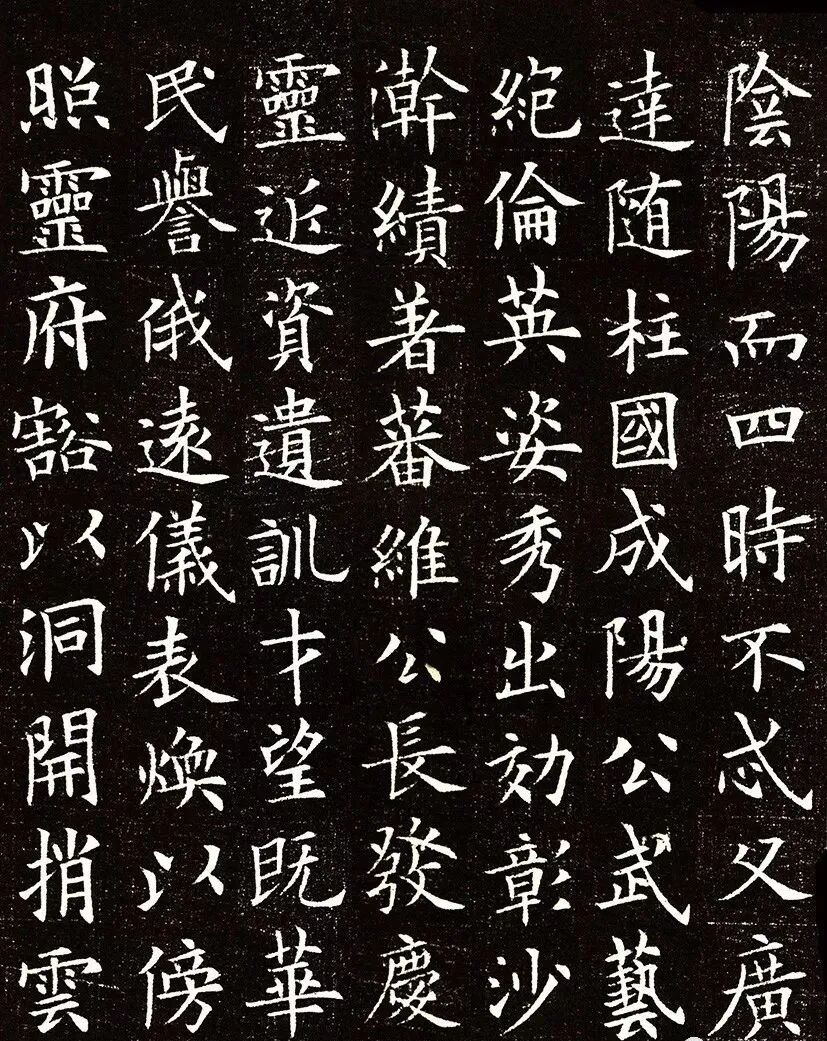 陰陽而四時不忒父廣
達随柱國成陽公武藝
絁倫英姿秀出効彰沙
漧績著蕃維公長發慶
靈近資遺訓才望旣華
民譽俄遠儀表煥以傍
照靈府豁以洞開捎雲